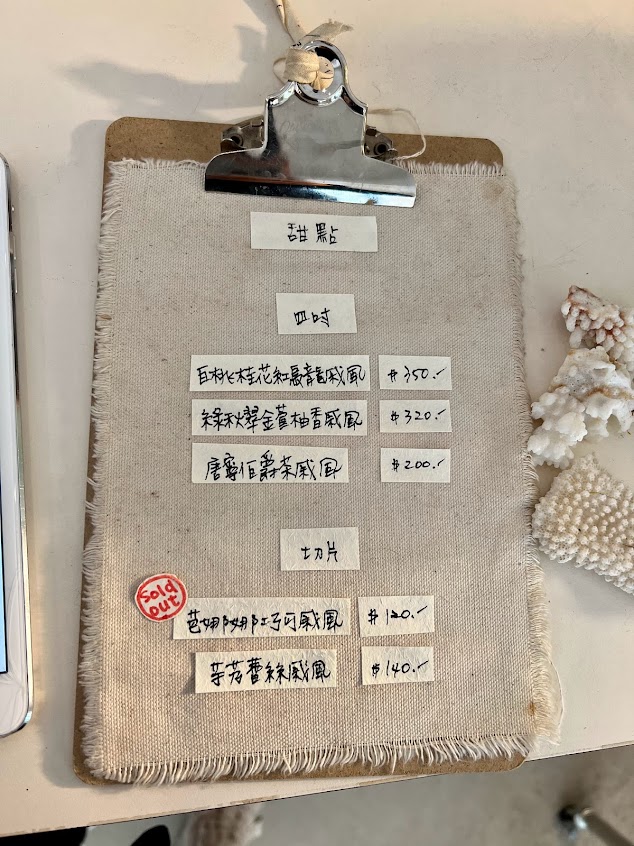 甜點
四吋
白桃桂花紅烏龍戚風 $350.-
綠秋翠金萱柚香戚風 $320.-
唐寧伯爵茶戚風 $200.-
切片
Sold out
芭娜娜阿可戚風 $120.-
芋芳蕾絲戚風 $140.-